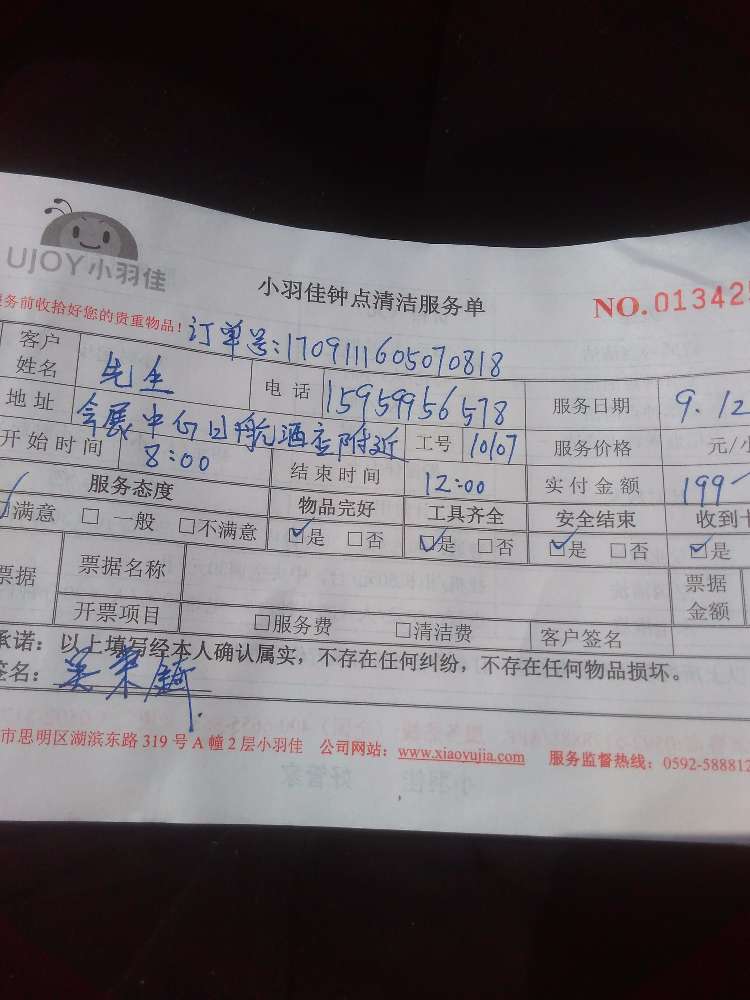 UJOY小羽佳
小羽佳钟点清洁服务单
NO.01342
务前收拾好您的贵重物品!
订单号:1709111605070818
客户姓名 先生 电话 15959956578 服务日期 9.12
地址 会展中心日航酒店附近 工号 10107 服务价格 元/小
开始时间 8:00 结束时间 12:00 实付金额 199
服务态度 物品完好 工具齐全 安全结束 收到卡
☑满意 □一般 □不满意 ☑是 □否 ☑是 □否 ☑是 □否 ☑是
票据 票据名称 票据金额
开票项目 □服务费 □清洁费 客户签名
承诺:以上填写经本人确认属实,不存在任何纠纷,不存在任何物品损坏。
签名:
市思明区湖滨东路319号A幢2层小羽佳 公司网站:www.xiaoyujia.com 服务监督热线:0592-588812